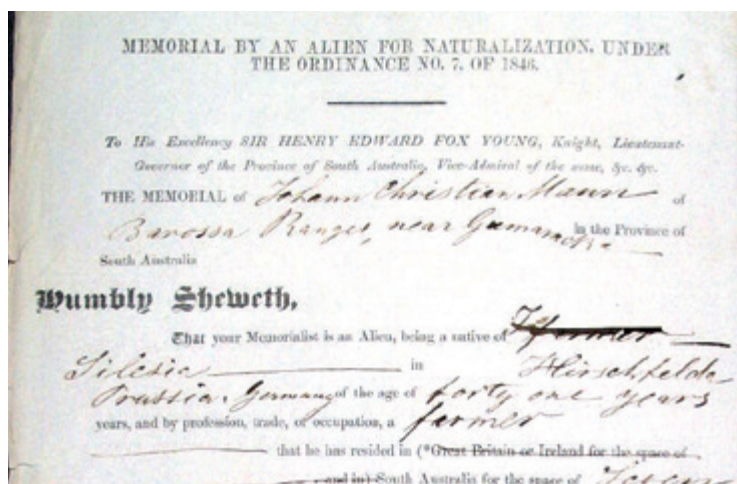 MEMORIAL BY AN ALIEN FOR NATURALIZATION, UNDER
THE ORDINANCE NO. 7, OF 1846.
To His Excellency SIR HENRY EDWARD FOX YOUNG, Knight, Lieutenant-
Governor of the Province of South Australia, Vice-Admiral of the same, &c. &c.
THE MEMORIAL of Johann Christian Maun of
Barossa Ranges, near Gumaracka in the Province of
South Australia
Humbly Sheweth,
That your Memorialist is an Alien, being a native of farmer
Silesia in Hirschfelde
Prussia, Germany of the age of forty one years
years, and by profession, trade, or occupation, a farmer
that he has resided in (*Great Britain or Ireland for the space of
and in) South Australia for the space of Seven